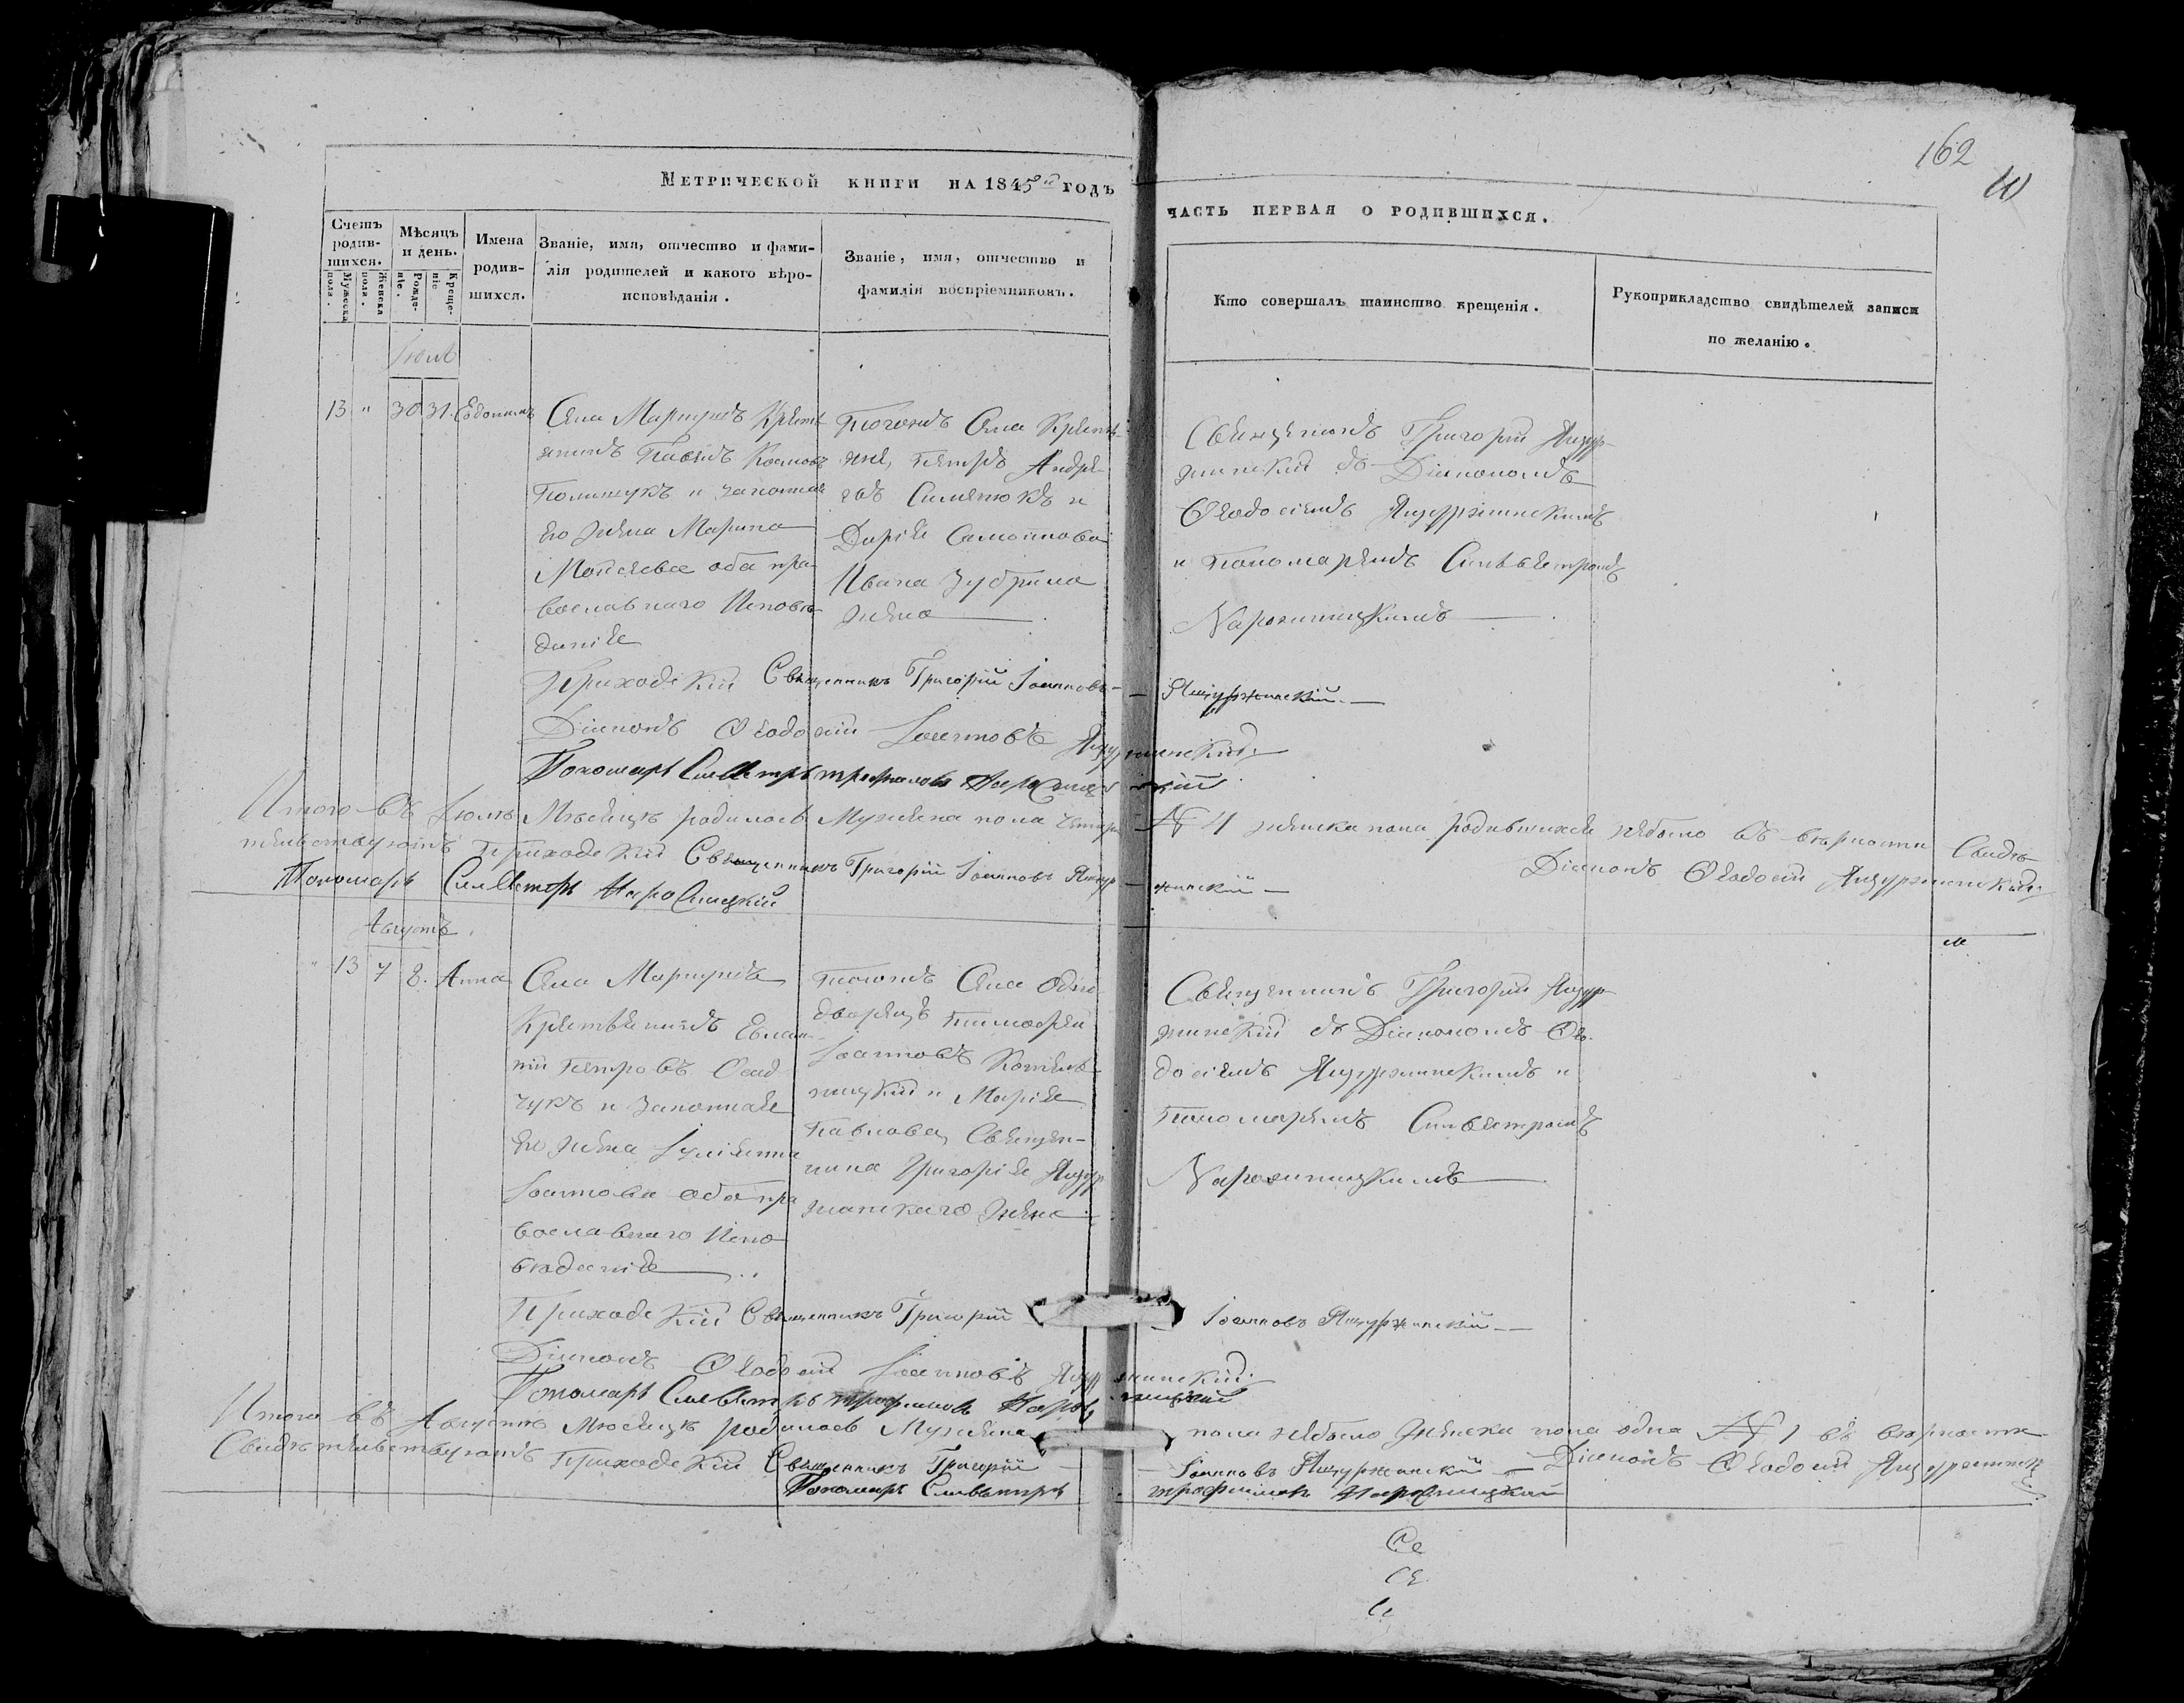 162
Метрической книги на 1845й годъ
часть первая о родившихся.
Счетъ родив-шихся.
Мужеска пола.
Женска пола.
Мѣсяцъ и день.
Рожде-ніе.
Креще-ніе
Имена
родив-
шихся.
Званіе, имя, отчество и фами-
лія родителей и какого вѣро-
исповѣданія.
Званіе, имя, отчество и
фамилія воспріемниковъ.
Кто совершалъ таинство крещенія.
Рукоприкладство свидѣтелей записи
по желанію.
Іюль
13 " 30 31. Евдокимъ
Села
Павелъ
Полищукъ и законная
его жена Марина
Моисеева оба пра-
вославнаго Исповѣ-
данія
Тогожъ Села Кресть-
яне, Петръ Андре-
евъ Симчюкъ и
Дарія Самоилова
Ивана
жена
Священникъ Григорій Ящур-
жинскій съ Діакономъ
Ѳеодосіемъ Ящуржинскимъ
и Пономаремъ Сильвестромъ
Нароліницкимъ
Приходскій Священникъ Григорій Іоанновъ Ящуржинскій
Діаконъ Ѳеодосій Іоанновъ Ящуржинскій
Пономарь Силвестръ Трофимовъ
Итого въ Іюлѣ Мѣсяцѣ родилось Мужеска пола четыре № 4 женска пола родившихся небыло въ вѣрности Свидѣ-
тельствуютъ Приходскій Священникъ Григорій Іоанновъ Ящуржинскій Діаконъ Ѳеодосій Ящуржинскій
Пономарь Силвестръ
Августъ.
" 13 7 8. Анна
Села
Крестьянинъ
Петровъ Осад-
чукъ и законная
его жена Іуліанна
Іоаннова оба пра-
вославнаго Испо-
вѣданія
Тогожъ Села Одно-
дворецъ Тимофей
Іоанновъ
и Марія
Павлова, Священ-
ника Григорія Ящур-
жинскаго жена
Священникъ Григорій Ящур-
жинскій съ Діакономъ Ѳео-
досіемъ Ящуржинскимъ и
Пономаремъ Силвестромъ
Нароліницкимъ
Приходскій Священникъ Григорій Іоанновъ Ящуржинскій
Діаконъ Ѳеодосій Іоанновъ Ящуржинскій
Пономарь Силвестръ Трофимовъ
Итого въ Августѣ Мѣсяцѣ родилось Мужеска пола небыло Женска пола одна № 1 въ вѣрности
Свидѣтельствуютъ Приходскій Священникъ Григорій Іоанновъ Ящуржинскій Діаконъ Ѳеодосій Ящуржинскій
Пономарь Силвестръ Трофимовъ